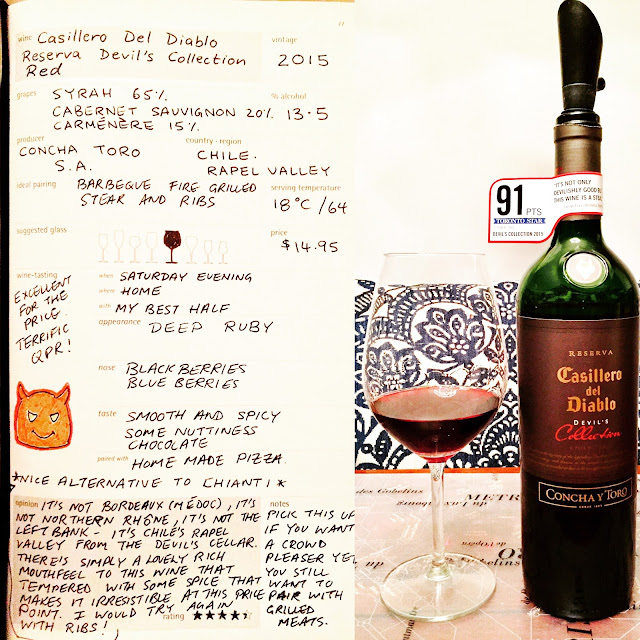 17
wine Casillero Del Diablo
Reserva Devil's Collection
Red
vintage
2015
grapes SYRAH 65%
CABERNET SAUVIGNON 20%
CARMÉNÈRE 15%
% alcohol
13.5
producer
CONCHA TORO
S.A.
country - region
CHILE.
RAPEL VALLEY
ideal pairing BARBEGUE FIRE GRILLED
STEAK AND RIBS
serving temperature
18°C/64
suggested glass
price
$14.95
wine-tasting
EXCELLENT
FOR THE
PRICE.
TERRIFIC
QPR!
when SATURDAY EVENING
where HOME
with MY BEST HALF
appearance DEEP RUBY
nose BLACKBERRIES
BLUE BERRIES
taste SMOOTH AND SPICY
SOME NUTTINESS
CHOCOLATE
paired with HOME MADE PIZZA.
*NICE ALTERNATIVE TO CHIANTI*
opinion IT'S NOT BORDEAUX (MÉDOC), IT'S
NOT NORTHERN RHÔNE, IT'S NOT THE
LEFT BANK - IT'S CHILE'S RAPEL
VALLEY FROM THE DEVIL'S CELLAR.
THERE'S SIMPLY A LOVELY RICH
MOUTHFEEL TO THIS WINE THAT
TEMPERED WITH SOME SPICE THAT
MAKES IT IRRESISTIBLE AT THIS PRICE
POINT. I WOULD TRY AGAIN
WITH RIBS!
rating ★★★★⯨
notes
PICK THIS UP
IF YOU WANT
A CROWD
PLEASER YET
YOU STILL
WANT TO
PAIR WITH
GRILLED
MEATS.
91
PTS
TORONTO STAR
DEVIL'S COLLECTION 2015
"IT'S NOT ONLY
DEVILISHLY GOOD BU
THIS WINE IS A STA
RESERVA
Casillero
del
Diablo
DEVIL'S
Collection
CONCHA Y TORO
SINCE 1883
des Gobelins
METR